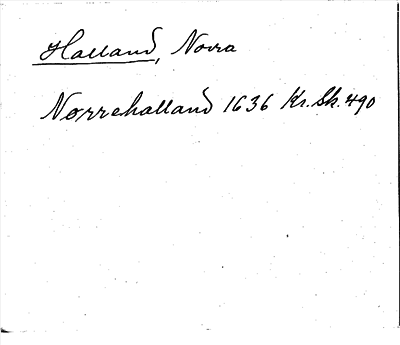 Halland, Norra
Nørrehalland 1636 Kr. Sk. 490